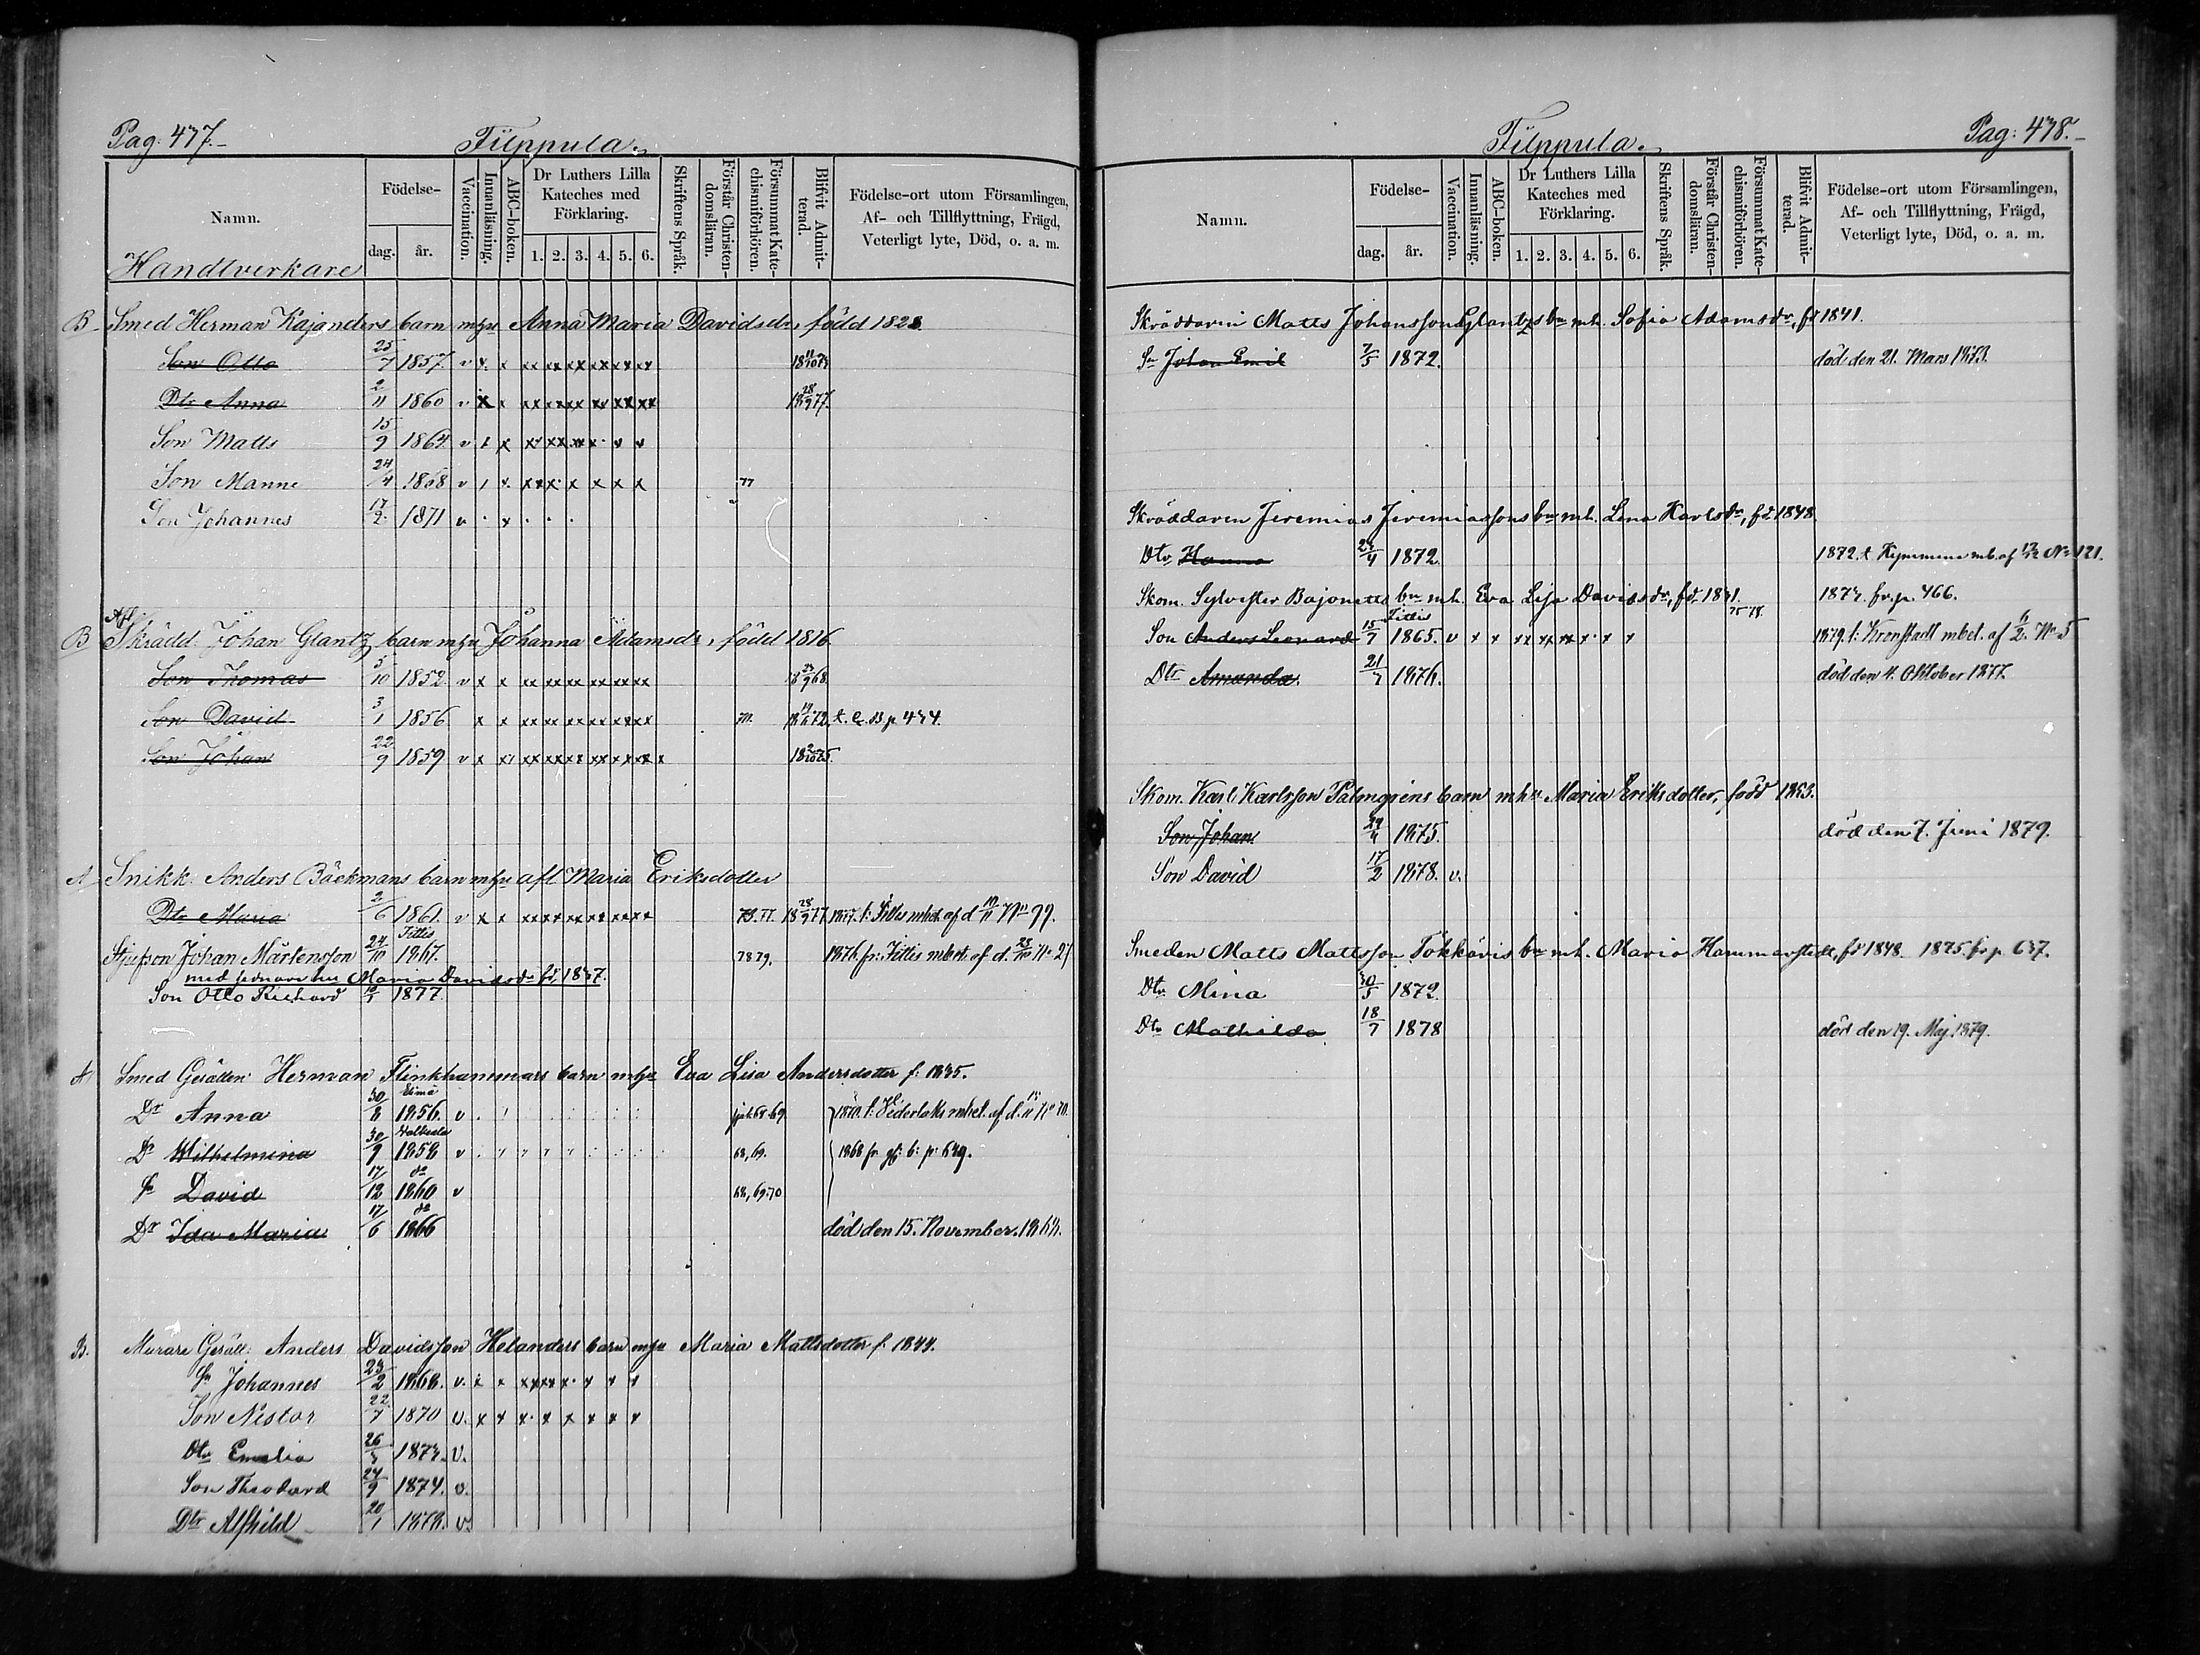 Pag: 477.
Filppula.
Namn.
Födelse-
dag.
år.
Vaccination.
Innanläsning.
ABC-boken.
Dr Luthers Lilla Kateches med Förklaring.
1. 2. 3. 4. 5. 6.
Skriftens Språk.
Förstår Christendomsläran.
Försummat Katechismiförhören.
Blifvit Admitterad.
Födelse-ort utom Församlingen,
Af- och Tillflyttning, Frägd,
Veterligt lyte, Död, o. a. m.
Handtverkare
B Smed Herman Kajanders barn mhu Anna Maria Davidsdr, född 1828.
Son Otto 25/7 1857. v
Dtr Anna 2/11 1860 v 18 28/9 77.
Son Matts 15/9 1864 v
Son Manne 24/4 1868 v 77
Son Johannes 17/2 1871 v
B Afl. Skrädd. Johan Glantz barn mhu Johanna Adamsdr, född 1816
Son Thomas 5/10 1852 v 68
Son David 3/1 1856 72. t. C. B p 474.
Son Johan 22/9 1859 v 75.
A Snikk: Anders Bäckmans barn mhu afl Maria Eriksdotter
Dtr Maria 2/6 1861. v 73. 77. 18 28/9 77. 1877. t: Sittis mbet. af d 19/11 No 99.
Sittis
Stjufson Johan Mårtensson 24/10 1867. 78 79. 1876. fr: Sittis mbet. af d.
med sednare hu Maria Davidsdr fd. 1837.
Son Otto Richard 1877.
A Smed Gesällen Herman Flinkhammars barn mhu Eva Lisa Andersdotter f: 1835.
Elimä
Dr Anna 30/8 1856. v 68. 69. 1870. t: Vederlaks mbet. af d.
Valkeala
Dr Wilhelmina 30/9 1858 v 68, 69. 1868 fr. p. 649.
do
Sn David 17/12 1860 v 68, 69. 70
do
Dr Ida Maria 17/6 1866 död den 15. November 1868.
B. Murare Gesäll: Anders Davidsson Helanders barn mhu Maria Mattsdotter f. 1844.
Sn Johannes 1868. v.
Son Nestor 22/7 1870 v.
Dtr Emelia 1873. v.
Son Theodard 24/9 1874. v.
Dtr Alfhild 20/1 1878. v.
Filppula.
Pag: 478.
Namn.
Födelse-
dag.
år.
Vaccination.
Innanläsning.
ABC-boken.
Dr Luthers Lilla Kateches med Förklaring.
1. 2. 3. 4. 5. 6.
Skriftens Språk.
Förstår Christendomsläran.
Försummat Katechismiförhören.
Blifvit Admitterad.
Födelse-ort utom Församlingen,
Af- och Tillflyttning, Frägd,
Veterligt lyte, Död, o. a. m.
Skräddarin Matts Johansson Glantzs bn mh. Sofia Adamsdr, fd 1841.
Sn Johan Emil 7/5 1872. död den 21. Mars 1873.
Skräddaren Jeremias Jeremiassons bn mh. Lena Karlsdr, fd 1848
Dtr Hanna 1872. 1872. t. Kymmene mb. af No 121.
Skom. Sylvester Bajonetts bn mh. Eva Lisa Davidsdr, fd 1831. 1873. fr. p. 466.
Sittis
Son Anders Leonard 15/7 1865. v 1879. t: Kronstadt mbet. af 6/2. No 5
Dtr Amanda. 21/7 1876. död den 4. Oktober 1877.
Skom. Karl Karlsson Palmgrens barn mhu Maria Eriksdotter, född 1853.
Son Johan 1875. död den 7. Juni 1879.
Son David 17/2 1878. v.
Smeden Matts Mattsson Tökkäris bn mh. Maria Hammarstedt, fd 1848 1875. fr. p. 637.
Dtr Mina 30/5 1872.
Dtr Mathilda 18/7 1878 död den 19. Maj. 1879.